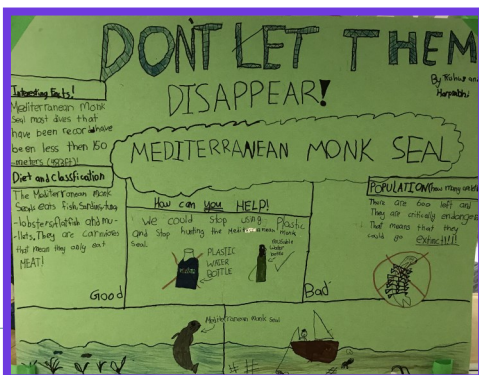 DON'T LET THEM
DISAPPEAR!
By
and
Interesting Facts!
Mediterranean Monk
Seal most dives that
have been recorded have
been less then 150
meters
Diet and Classfication
The Mediterranean Monk
Seals eats fish, Sardins, tuna
-lobsters flatfish and mu-
llets. They are carnivores
that mean they only eat
MEAT!
MEDITERRANEAN MONK SEAL
How can you HELP!
We could stop using Plastic
and stop hunting the mediterranean monk
seal.
PLASTIC
WATER
BOTTLE
reusable
water
bottle
POPULATION
There are 600 left and
They are critically endangered
That means that they
could go extinct!!!!
Good
Bad
Mediterranean Monk seal